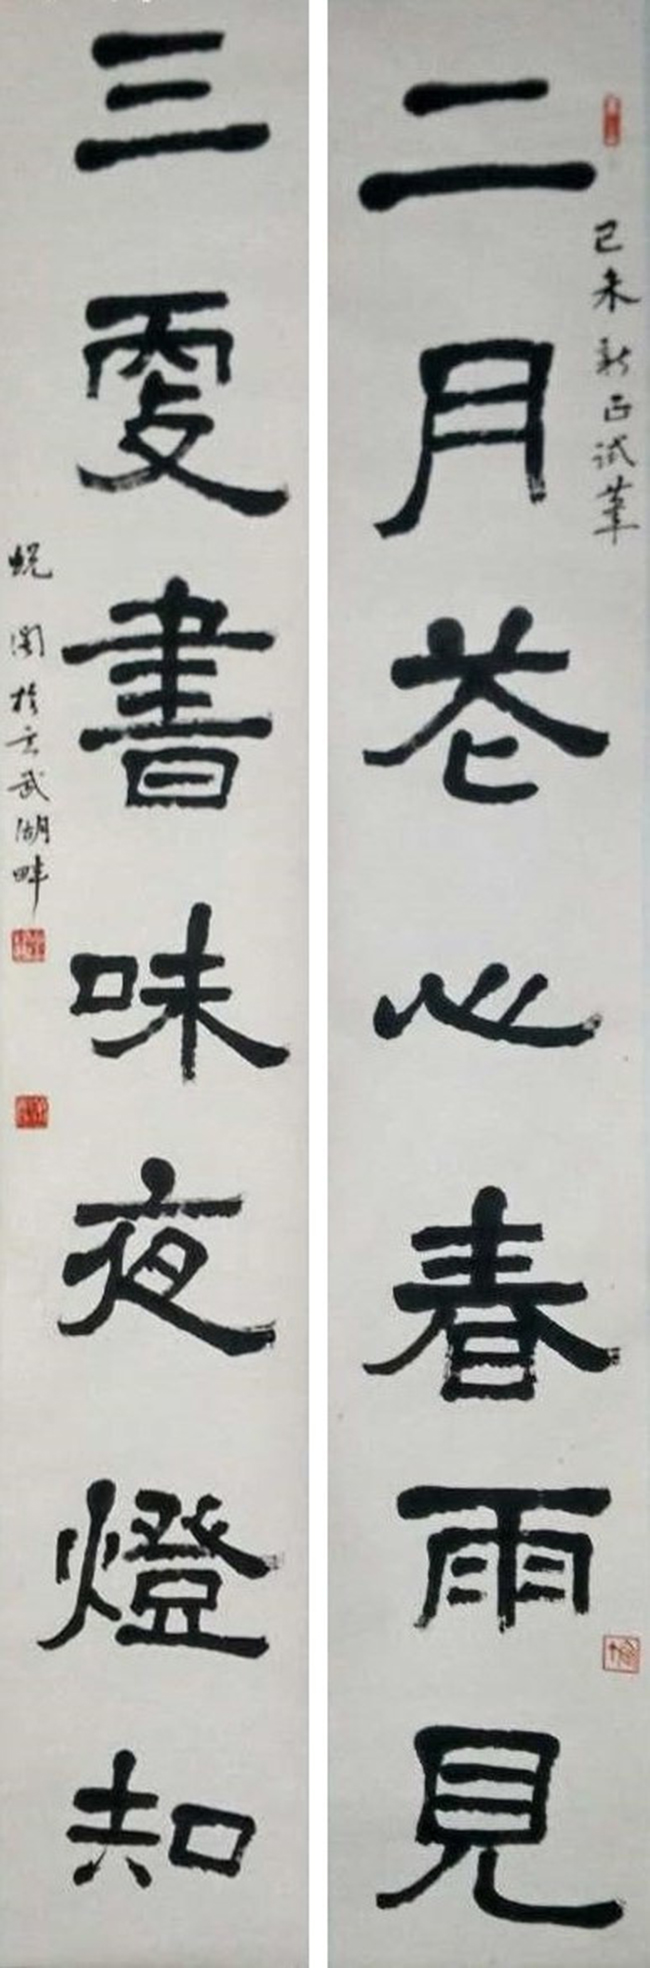 己未新正試筆
二月花心春雨見
三更書味夜燈知
於玄武湖畔